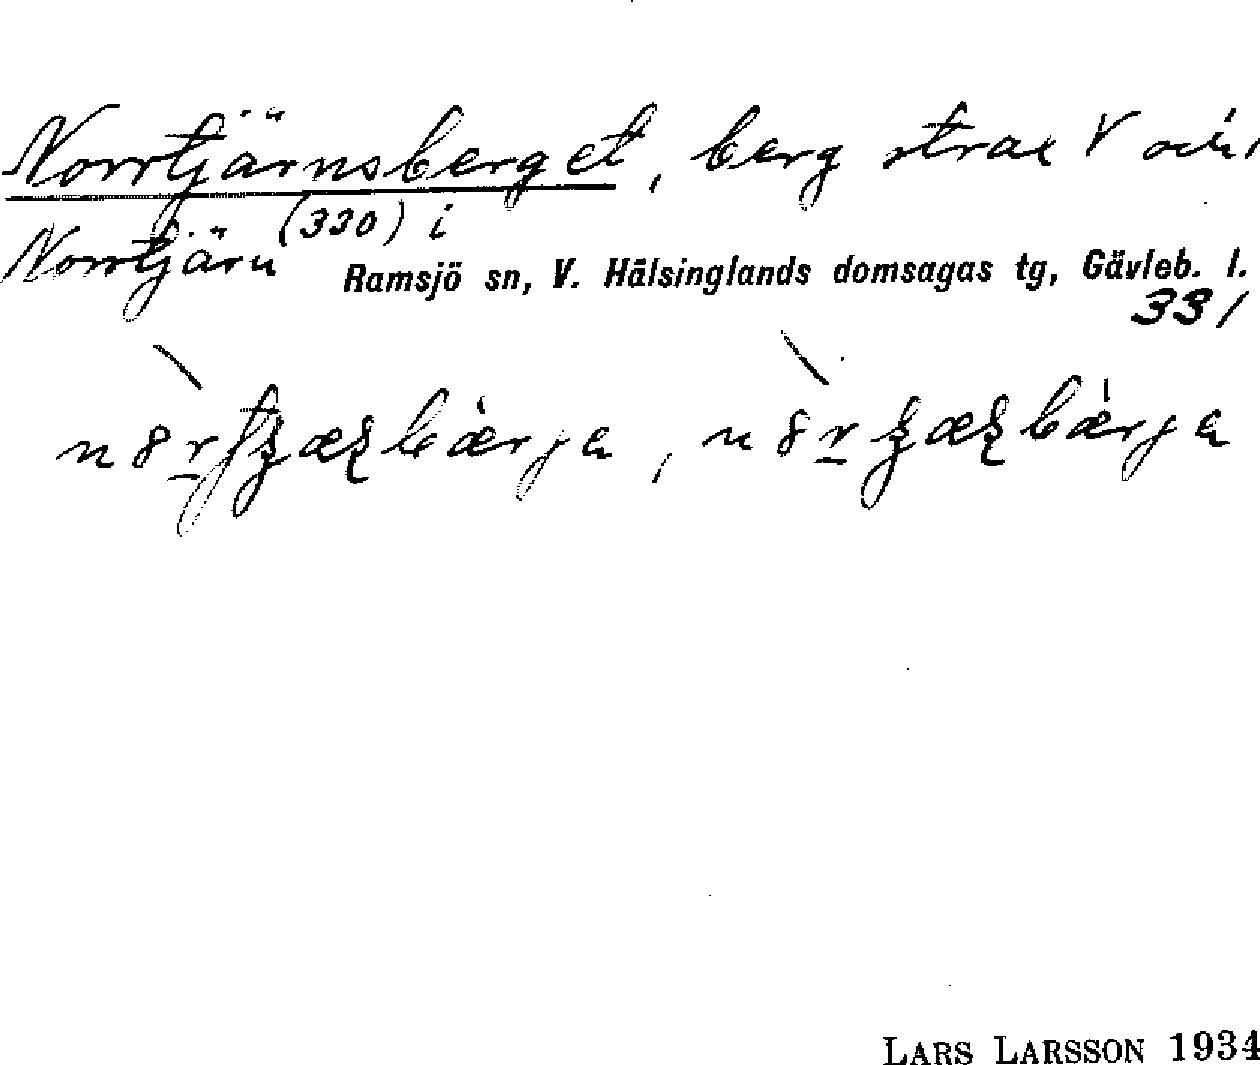 Norrtjärnsberget, berg strax V och
Norrtjärn (330) i
Ramsjö sn, V. Hälsinglands domsagas tg, Gävleb. l.
331
LARS LARSSON 1934